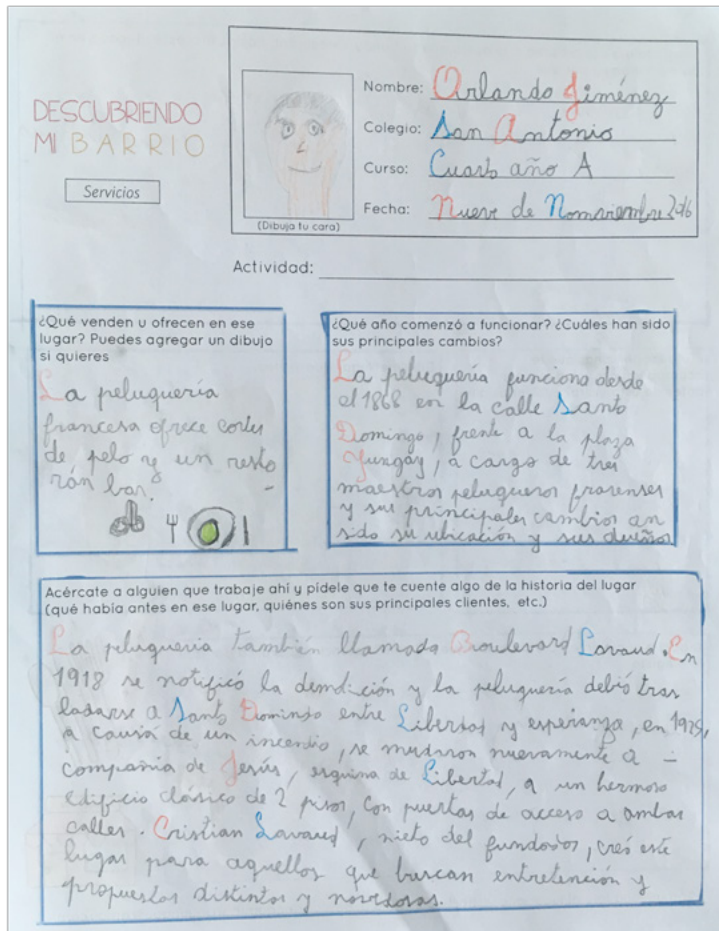 DESCUBRIENDO
MI BARRIO
Servicios
(Dibuja tu cara)
Nombre: Orlando Jiménez
Colegio: San Antonio
Curso: Cuarto año A
Fecha: Nueve de 2016
Actividad:
¿Qué venden u ofrecen en ese
lugar? Puedes agregar un dibujo
si quieres
La peluquería
francesa ofrece cortes
de pelo y un resto
rán bar.
¿Qué año comenzó a funcionar? ¿Cuáles han sido
sus principales cambios?
La peluquería funciona desde
el 1868 en la calle Santo
Domingo, frente a la plaza
Yungay, a cargo de tres
maestros peluqueros
y sus principales cambios an
sido su ubicación y sus dueños
Acércate a alguien que trabaje ahí y pídele que te cuente algo de la historia del lugar
(qué había antes en ese lugar, quiénes son sus principales clientes, etc.)
La peluqueria también llamada Boulevard Lavaud. En
1918 se notificó la y la peluquería debió tras
ladarse a Santo Domingo entre Libertad y esperanza, en 1925,
a causa de un incendio, se mudaron nuevamente a -
compañia de Jesús, esquina de Libertad, a un hermoso
edificio clásico de 2 pisos, con puertas de acceso a ambas
calles. Cristian Lavaud, nieto del fundador, creó este
lugar para aquellos que buscan entretención y
propuestas distintas y novedosas.